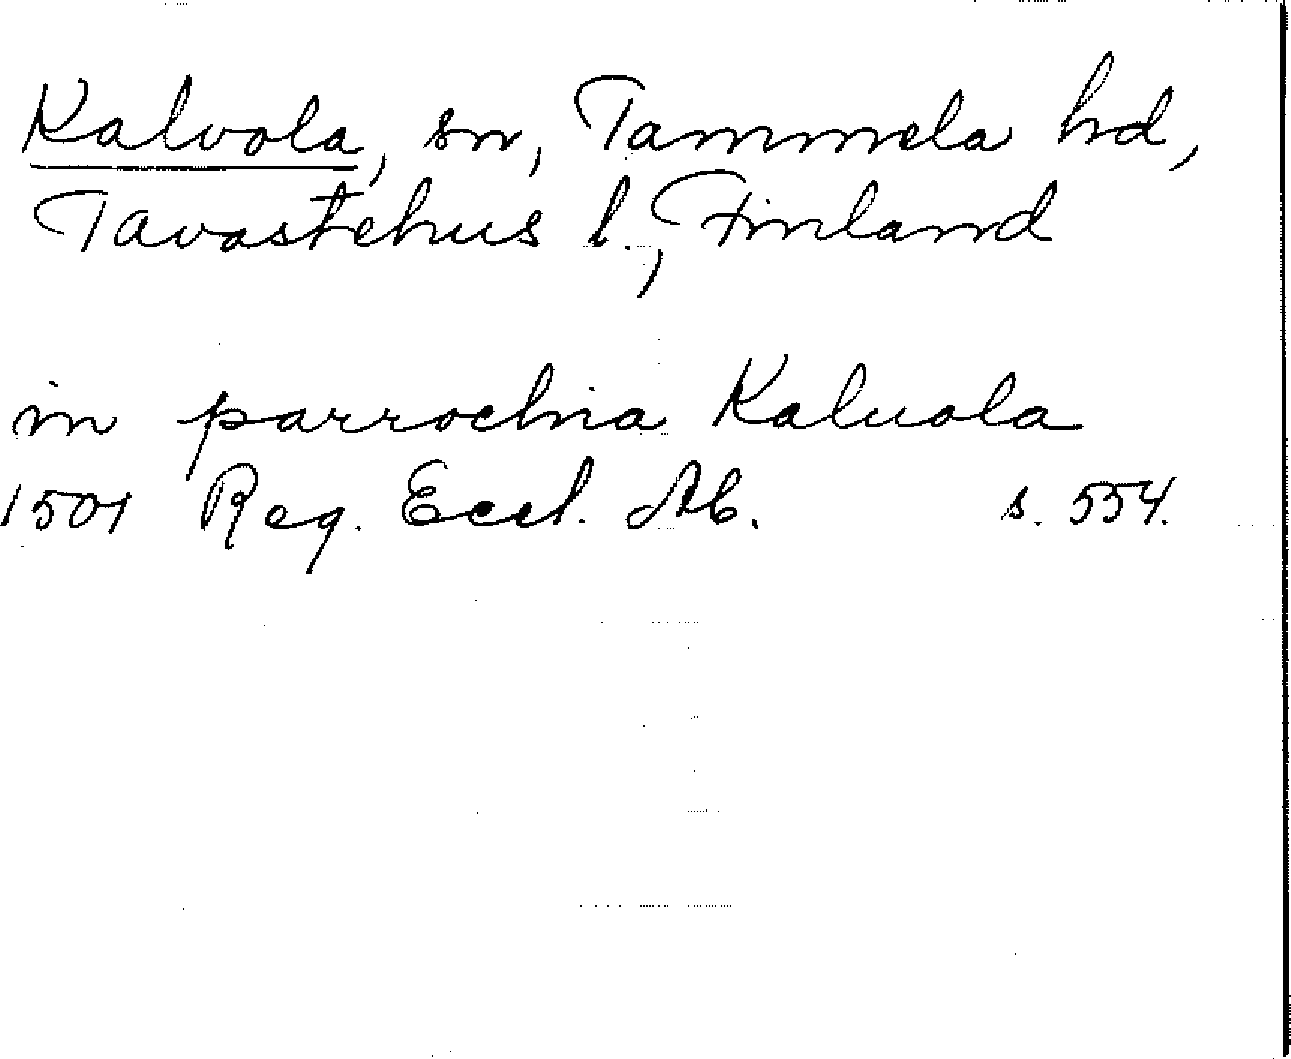 Kalvola, sn, Tammela hd,
Tavastehus l., Finland
in parrochia Kaluola
1501 Reg. Eccl. Ab. s. 554.